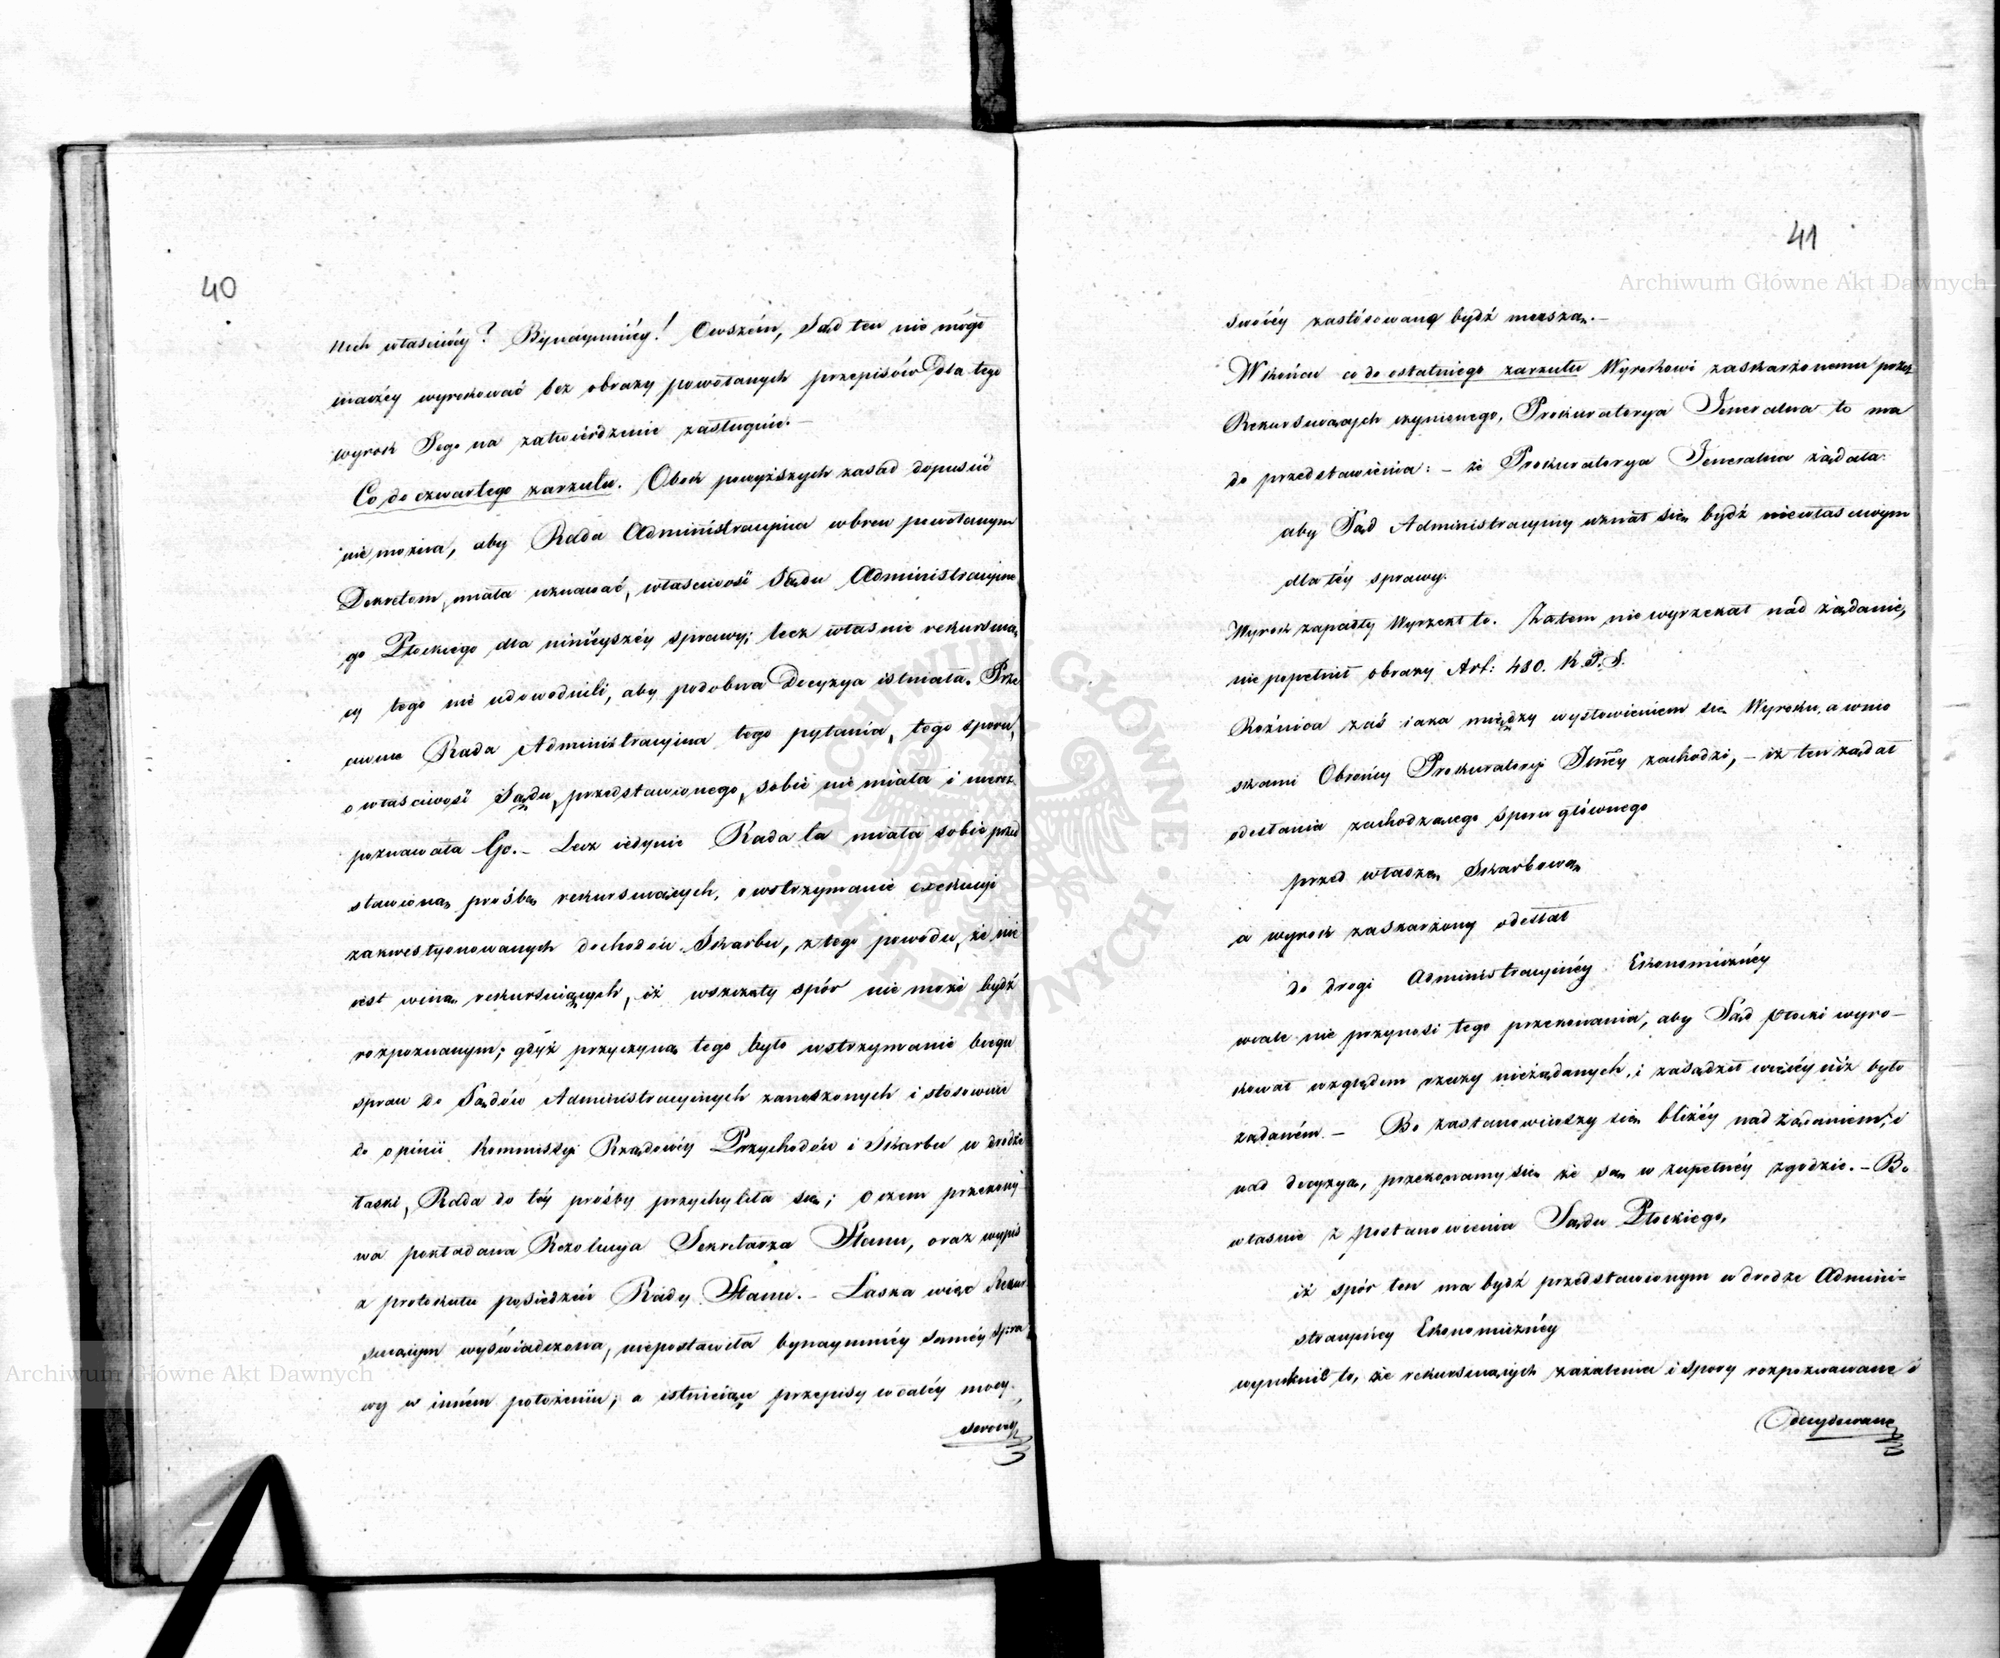 40
nich właściwéy? Bynaymniéy! Owszém, Sąd ten nie mógł
inaczéy wyrokować bez obrazy powołanych przepisów Dla tego
wyrok Jego na zatwierdzenie zasługuie. —
Co do czwartego zarzutu. Obok powyższych zasad dopuścić
nie można, aby Rada Administracyina wbrew powołanym
Dekretom, miała uznawać, właściwość Sądu Administracyine
go Płockiego dla ninieyszéy sprawy; lecz właśnie rekursuią
cy tego nie udowodnili, aby podobna Decyzya istniała. Prze
ciwnie Rada Administracyina tego pytania, tego sporu,
o właściwość Sądu, przedstawionego, sobie nie miała i nieroz
poznawała Go. — Lecz iedynie Rada ta miała sobie przed
stawioną prośbę rekursuiących, o wstrzymanie exekucyi
zakwestyonowanych dochodów Skarbu, z tego powodu, że nie
iest winą rekursuiących, iż wszczęty spór nie może bydź
rozpoznanym; gdyż przyczyną tego było wstrzymanie biegu
spraw do Sądów Administracyinych zanoszonych i stosownie
do opinii Kommissyi Rządowéy Przychodów i Skarbu w drodze
łaski, Rada do téy prośby przychyliła się; o czem przekony
wa pokładana Rezolucya Sekretarza Stanu, oraz wypis
z protokułu posiedzeń Rady Stanu. — Łaska więc Rekur
suiącym wyświadczona, niepostawiła bynaymniéy saméy spra
wy w inném położeniu; a istnieiące przepisy w całéy mocy
swoiéy
41
swoiéy zastósowane bydź muszą. —
W końcu co do ostatniego zarzutu Wyrokowi zaskarżonemu przez
Rekursuiących czynionego, Prokuratorya Jeneralna to ma
do przedstawienia: — że Prokuratorya Jeneralna żądała:
aby Sąd Administracyiny uznał się bydź niewłaściwym
dla téy sprawy.
Wyrok zapadły wyrzekł to. Zatem nie wyrzekał nad żądanie,
nie popełnił obrazy Art: 480. K.P.S.
Różnica zaś iaka między wysłowieniem się Wyroku, a wnio
skami Obrońcy Prokuratoryi Jnéy zachodzi, — iż ten żądał
odesłania zachodzącego sporu głównego
przed władzę Skarbową
a wyrok zaskarżony odesłał
do drogi Administracyinéy Ekonomicznéy
wcale nie przynosi tego przekonania, aby Sąd Płocki wyro—
kował względem rzeczy nieżądanych, i zasądził więcéy niż było
żądaném. — Bo zastanowiwszy się bliżéy nad żądaniem, i
nad decyzyą, przekonamy się że są w zupełnéy zgodzie. — Bo
właśnie z postanowienia Sądu Płockiego,
iż spór ten ma bydź przedstawionym w drodze Admini=
stracyinéy Ekonomicznéy
wyniknie to, że rekursuiących zażalenia i spory rozpoznawane i
Decydowane
Archiwum Główne Akt Dawnych
Archiwum Główne Akt Dawnych
ARCHIWUM GŁÓWNE AKT DAWNYCH